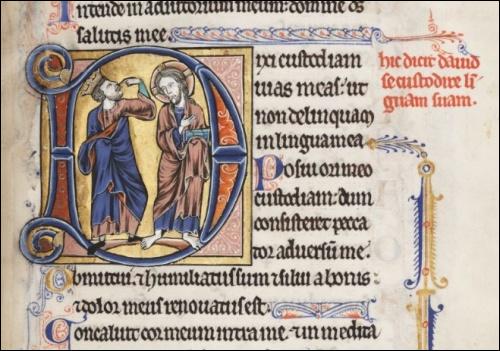 Intende in adiutorium meum:
salutis mee.
Dixi custodiam
uias meas: ut
non delinquam
in lingua mea
Posui ori meo
custodiam: dum
consisteret pecca
tor aduersum me.
Omutui: & humiliatus sum & silui a bonis:
& dolor meus renouatus est
Concaluit cor meum intra me: & in medita
hic dicit dauid
se custodire li
guam suam.